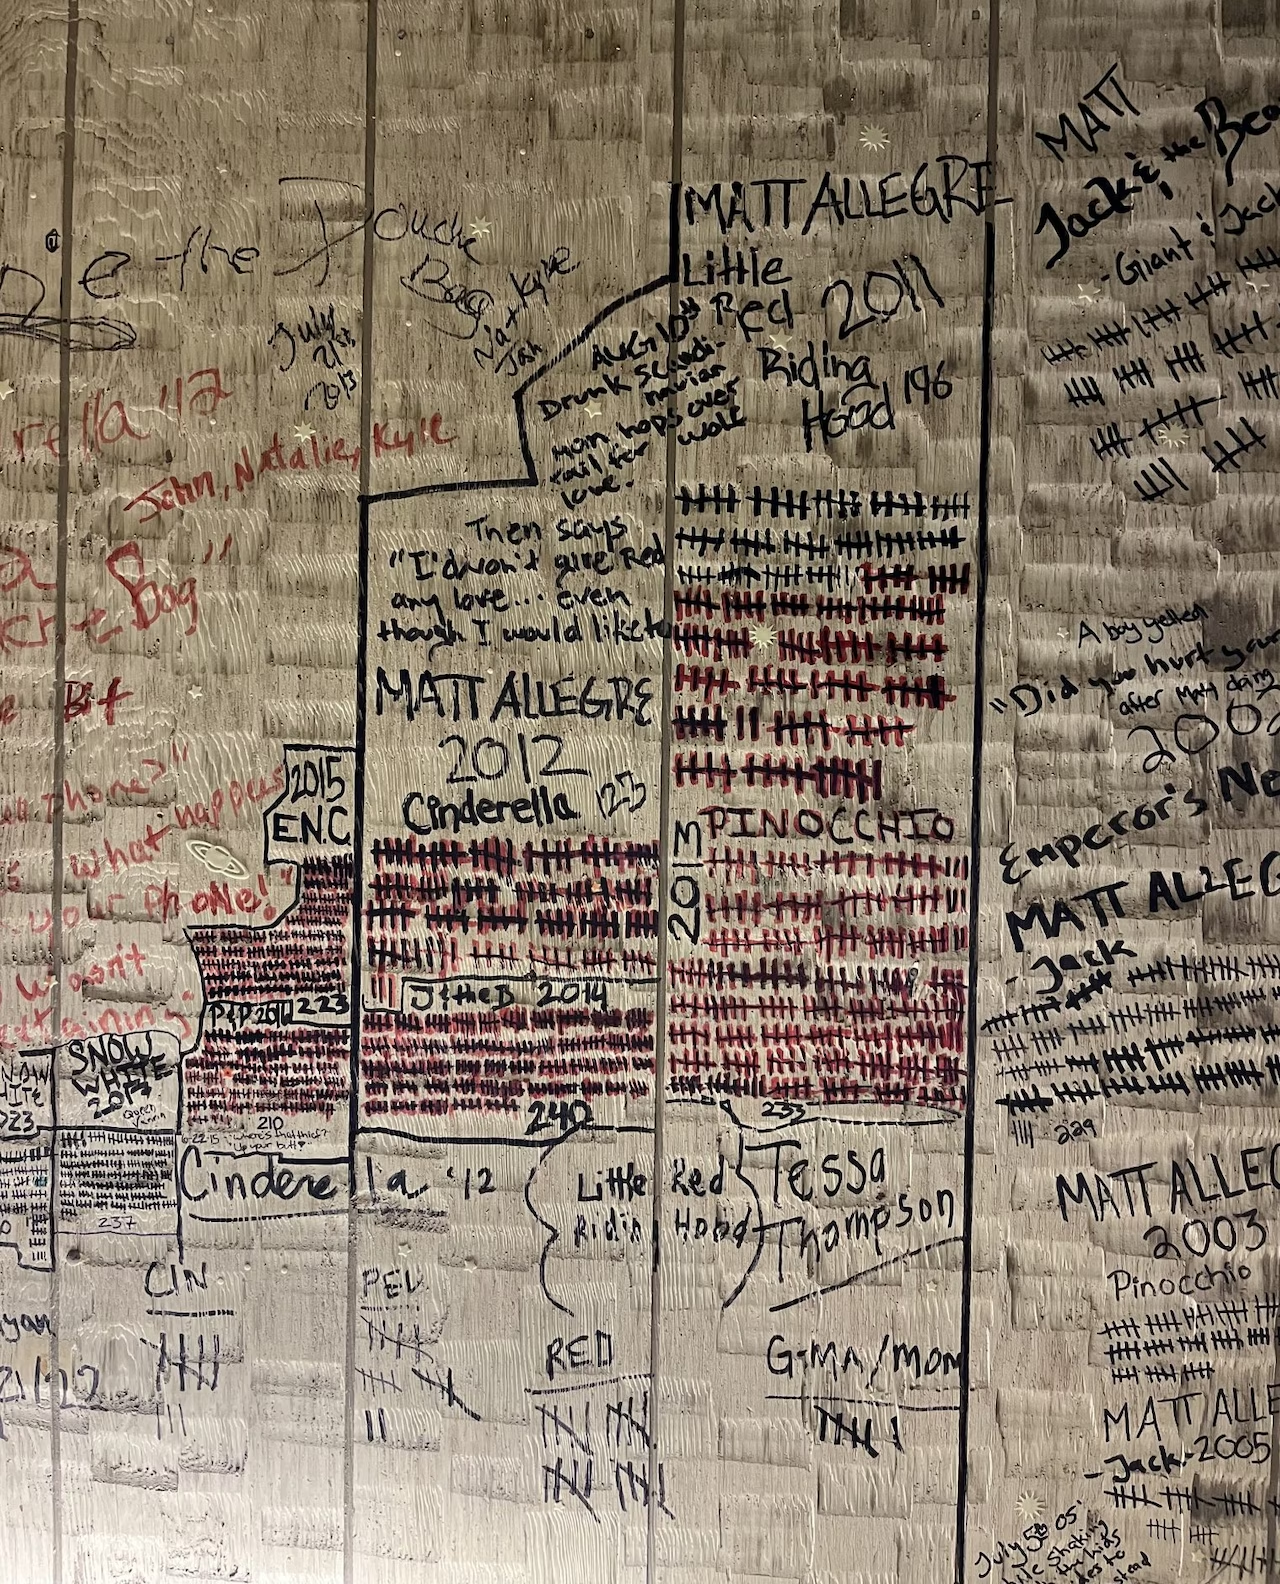 Die the Douche
Bag
Nat Kyle
Josh
July
21st
2013
rella '12
John, Natalie, Kyle
Bag"
Bit
Phone?"
what happens
your Phone!"
wasn't
MATT ALLEGRE
Little
Red 2011
Riding
Hood 196
AUG 10th
Drunk Scandi-
navian
man hops over
rail for wolf
love.
Then says
"I'd won't give Red
any love... even
though I would like to
MATT ALLEGRE
2012
Cinderella 123
2015
ENC
223
P&P 2014
210
6-22-15 - "where's that thief?
Up your butt
J & the B 2014
240
2013 PINOCCHIO
233
SNOW
WHITE
2017
237
Cinderella '12
Little Red
Ridin Hood
Tessa
Thompson
CIN
RED
G-MA/MOM
21/22
MATT
Jack & the Bea
- Giant & Jack
A boy yelled
"Did you hurt your
after Matt
Emperor's Ne
MATT ALLEG
- Jack
229
MATT ALLEG
2003
Pinocchio
MATT ALLE
- Jack - 2005
July 5th 05
Shaking
the kids